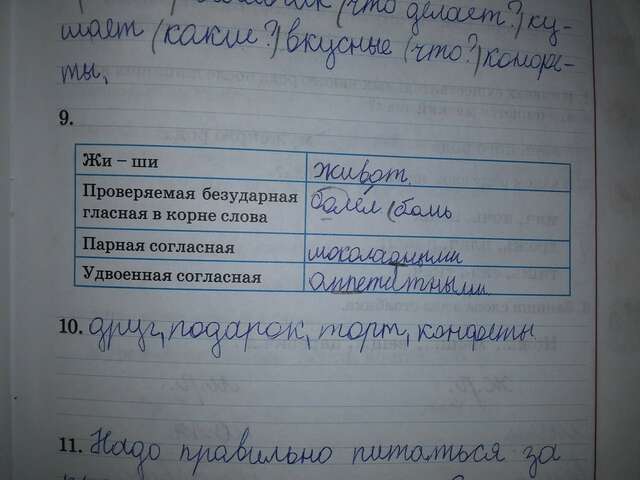 (что делает?) ку-
шает (какие?) вкусные (что?) конфе-
ты.
9.
Жи – ши живот
Проверяемая безударная болел (боль
гласная в корне слова
Парная согласная шоколадными
Удвоенная согласная аппетитными
10. друг, подарок, торт, конфеты
11. Надо правильно питаться за